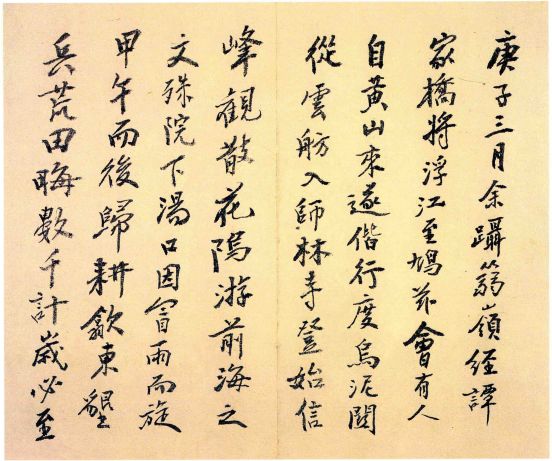 庚子三月余躡篛嶺經譚
家橋將浮江至鳩茲會有人
自黃山來遂偕行度烏泥關
從雲舫入師林寺登始信
峰觀散花隖游前海之
文殊院下湯口因冒雨而旋
甲午而後歸耕歙東壂
兵荒田晦數千計歲必至